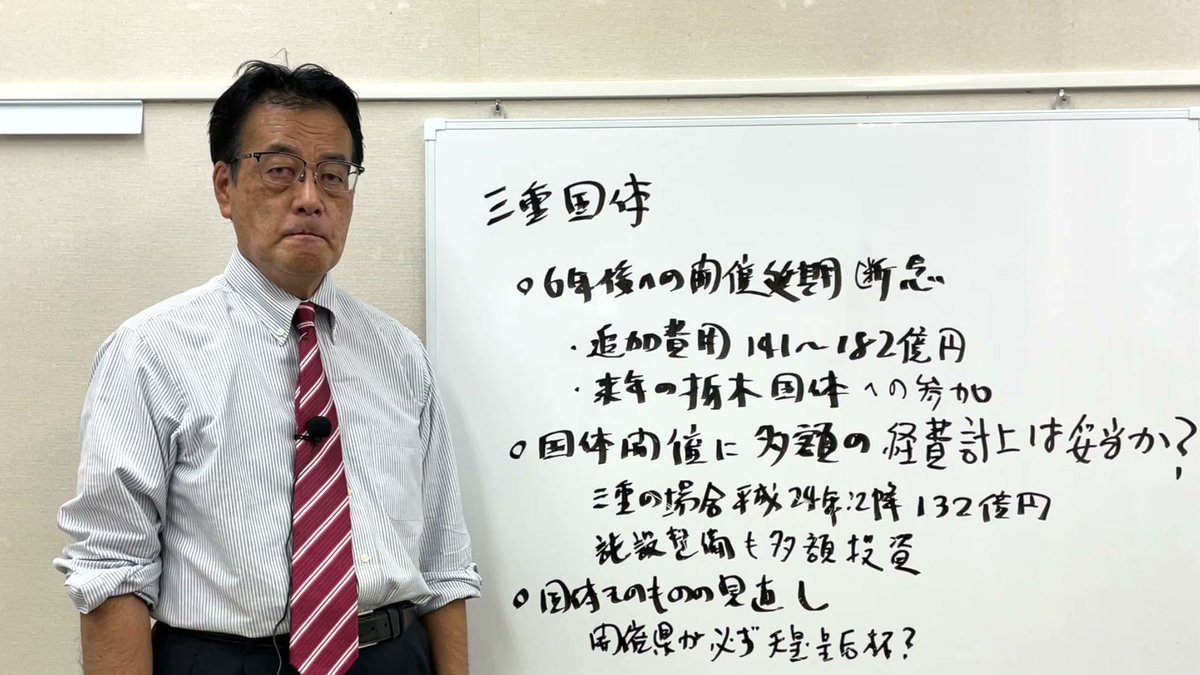 三重国体
○6年後への開催延期断念
・追加費用141〜182億円
・来年の栃木国体への参加
○国体開催に多額の経費計上は妥当か?
三重の場合平成24年以降132億円
施設整備も多額投資
○国体そのものの見直し
開催県が必ず天皇皇后杯?